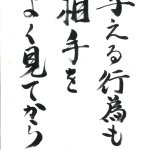 与える行為も
相手を
よく見てから